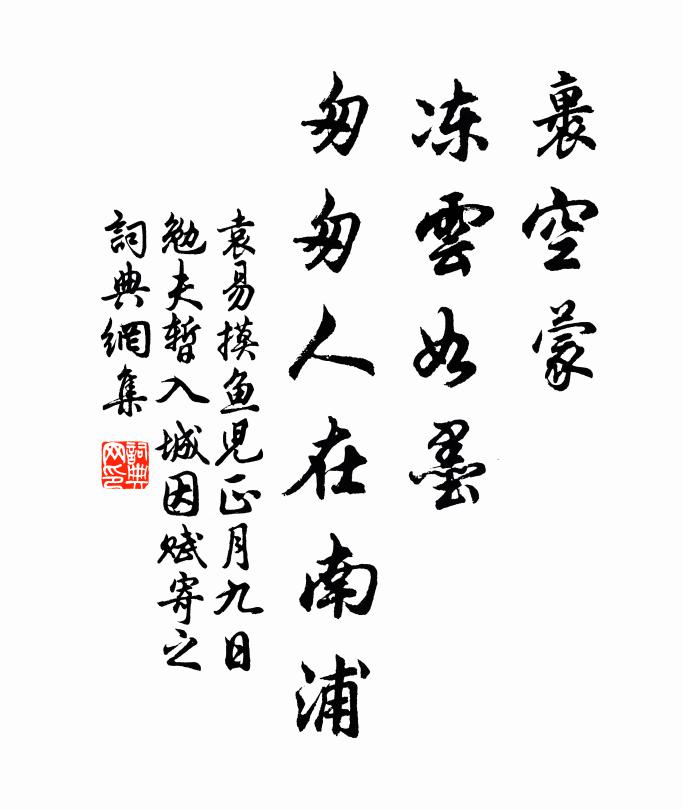 裹空蒙
冻雲如墨
匆匆人在南浦
袁易摸鱼児正月九日
勉夫暂入城因赋寄之
詞典網集
詞典网印